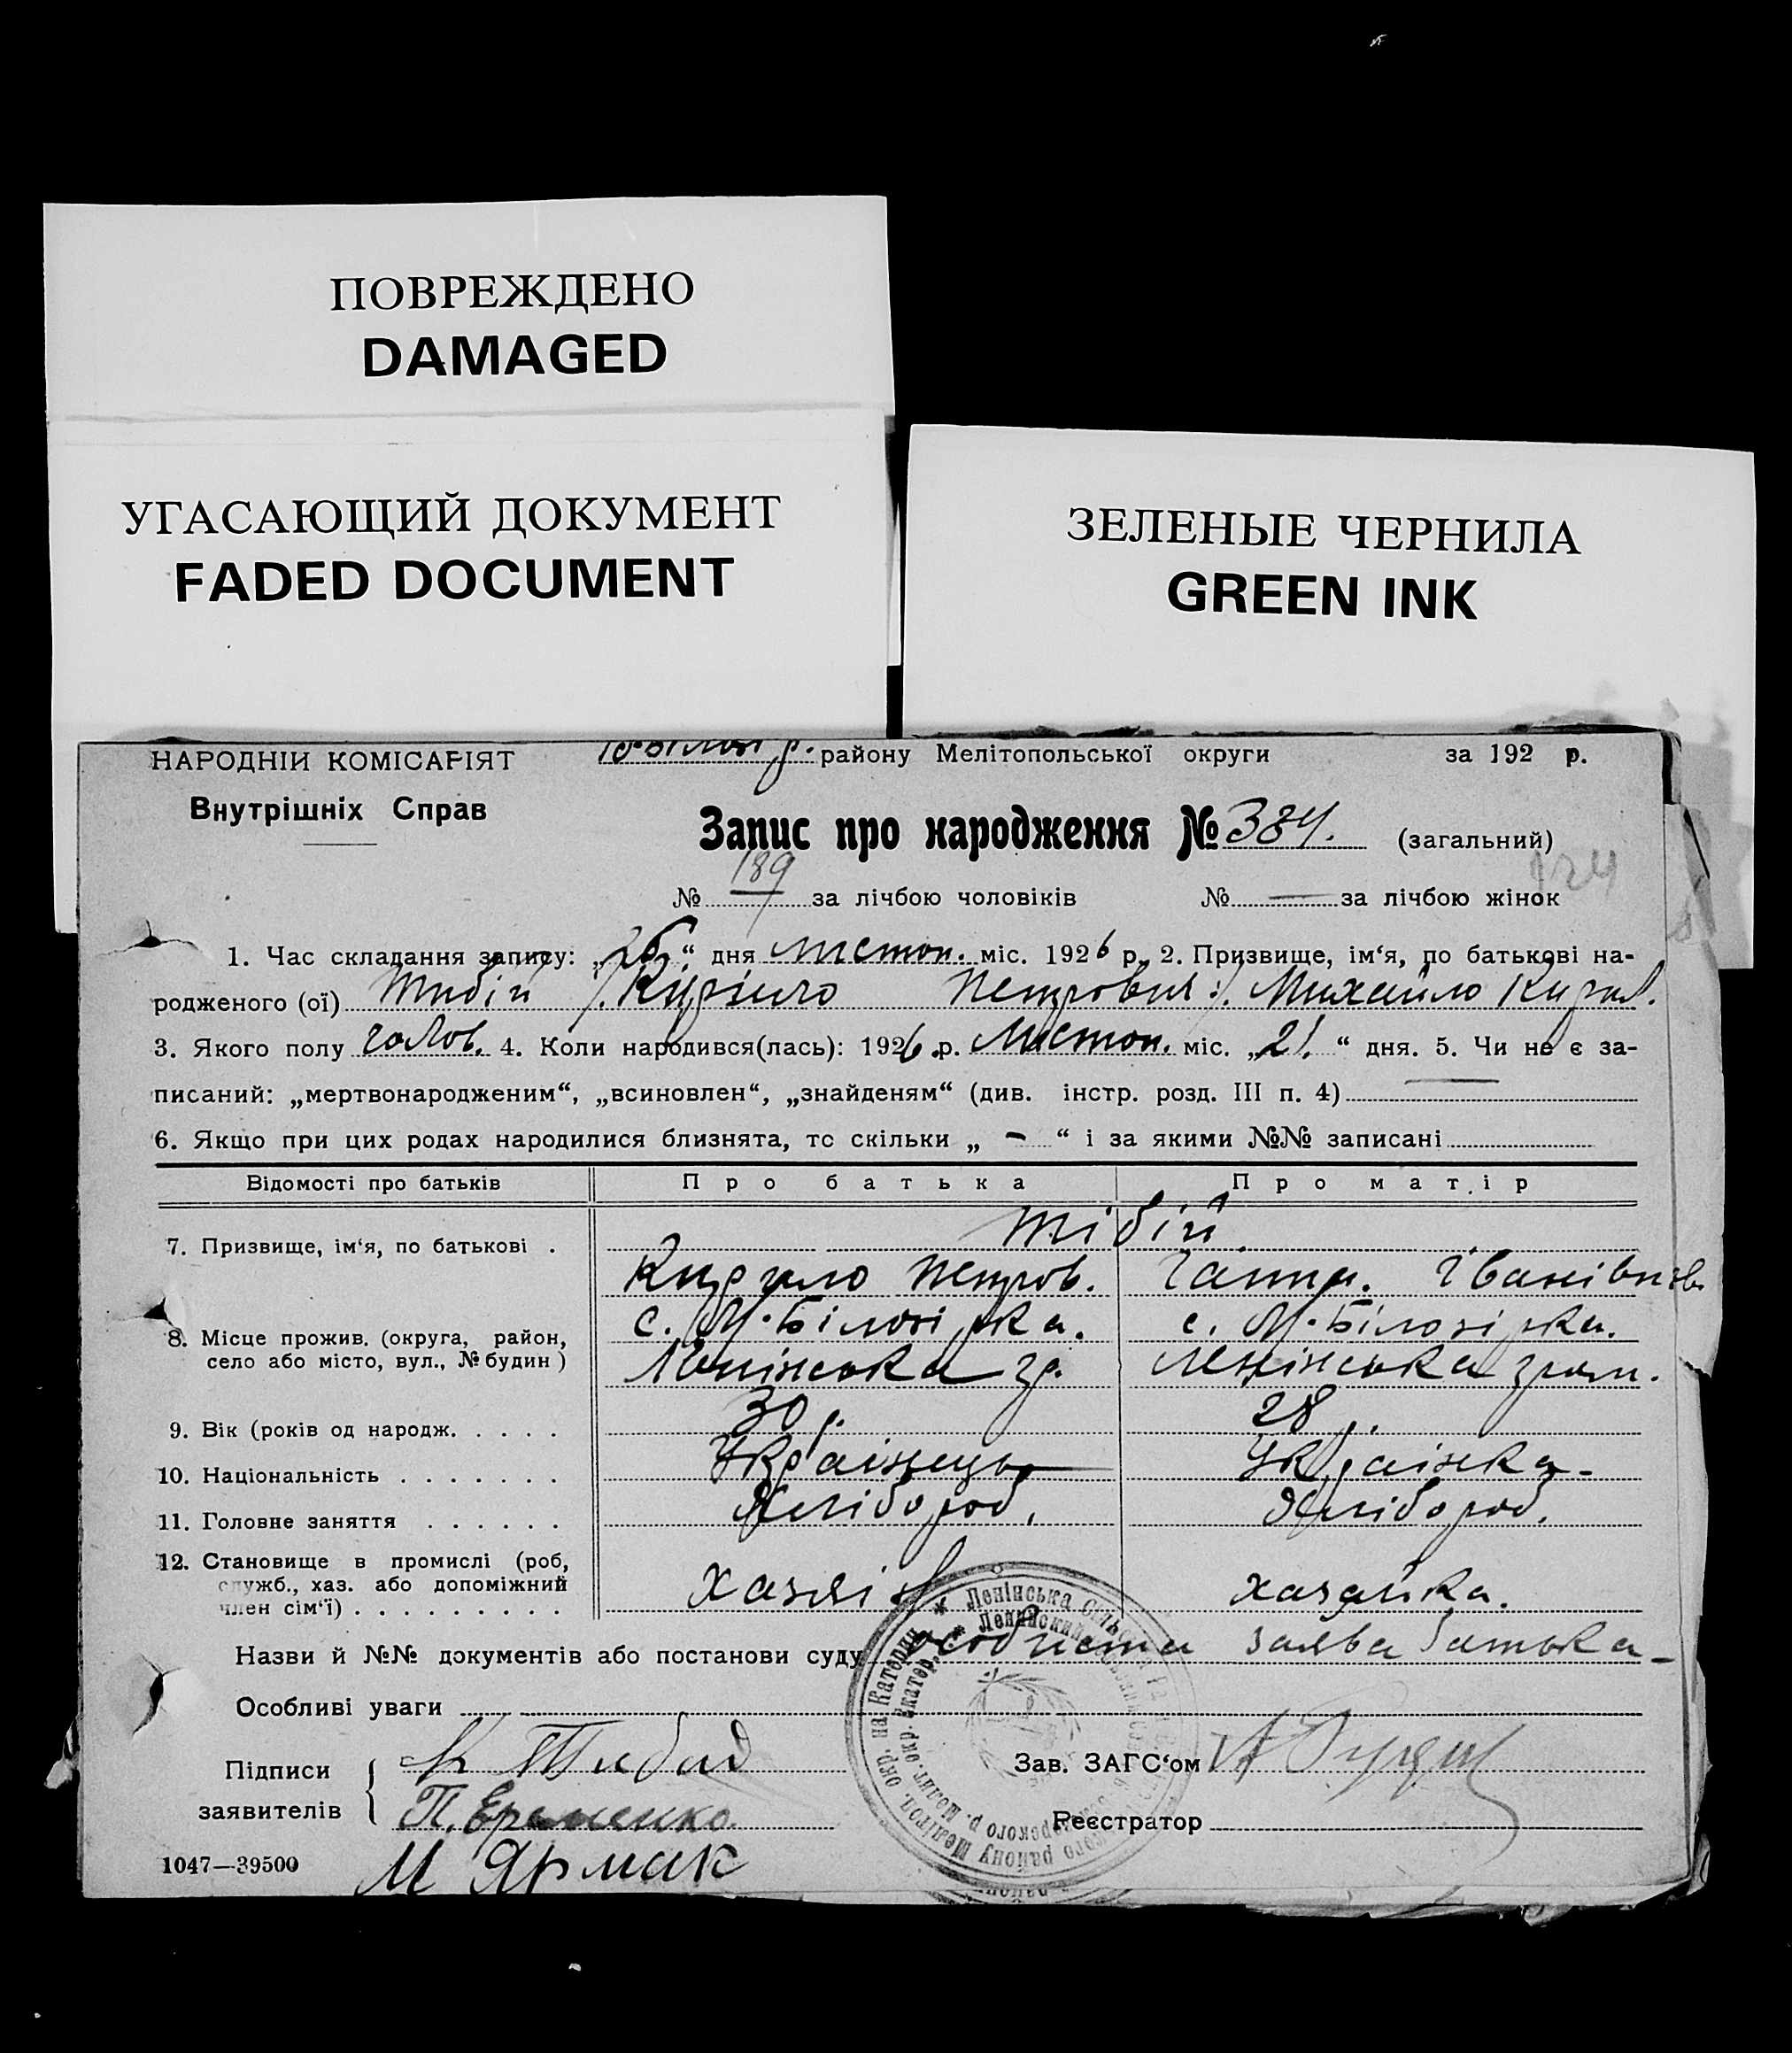 ПОВРЕЖДЕНО
DAMAGED
УГАСАЮЩИЙ ДОКУМЕНТ
FADED DOCUMENT
ЗЕЛЕНЫЕ ЧЕРНИЛА
GREEN INK
НАРОДНІЙ КОМІСАРІЯТ
Внутрішніх Справ
району Мелітопольської округи за 192 р.
Запис про народження № 384. (загальний)
124
№ 189 за лічбою чоловіків № — за лічбою жінок
1. Час складання запису: „ “ дня листоп. міс. 1926 р. 2. Призвище, ім‘я, по батькові на-
родженого (ої) Тибій /. Кирило Петрович:/. Михайло Кирил.
3. Якого полу 4. Коли народився(лась): 1926 р. Листоп. міс. „21.“ дня. 5. Чи не є за-
писаний: „мертвонародженим“, „всиновлен“, „знайденям“ (див. інстр. розд. III п. 4) —
6. Якщо при цих родах народилися близнята, то скільки „ – “ і за якими №№ записані
Відомості про батьків Про батька Про матір
7. Призвище, ім‘я, по батькові . Тібій
Кирило Петров. Ганна. Іванівна
8. Місце прожив. (округа, район, село або місто, вул., № будин) с. М. Білозірка. с. М. Білозірка.
Ленінська гр. Ленінська гром.
9. Вік (років од народж. . . . . 30 р. 28 р.
10. Національність . . . . . . . Українець Українка-
11. Головне заняття . . . . . . Хлібороб. Хлібороб.
12. Становище в промислі (роб, служб., хаз. або допоміжний член сім‘ї) . . . . . . . . . хазяїн хазяйка.
Назви й №№ документів або постанови суду особиста заява батька-
Особливі уваги
Підписи заявителів К Тибій
П. Еременко.
М Ярмак
Зав. ЗАГС‘ом
Реєстратор
1047—39500